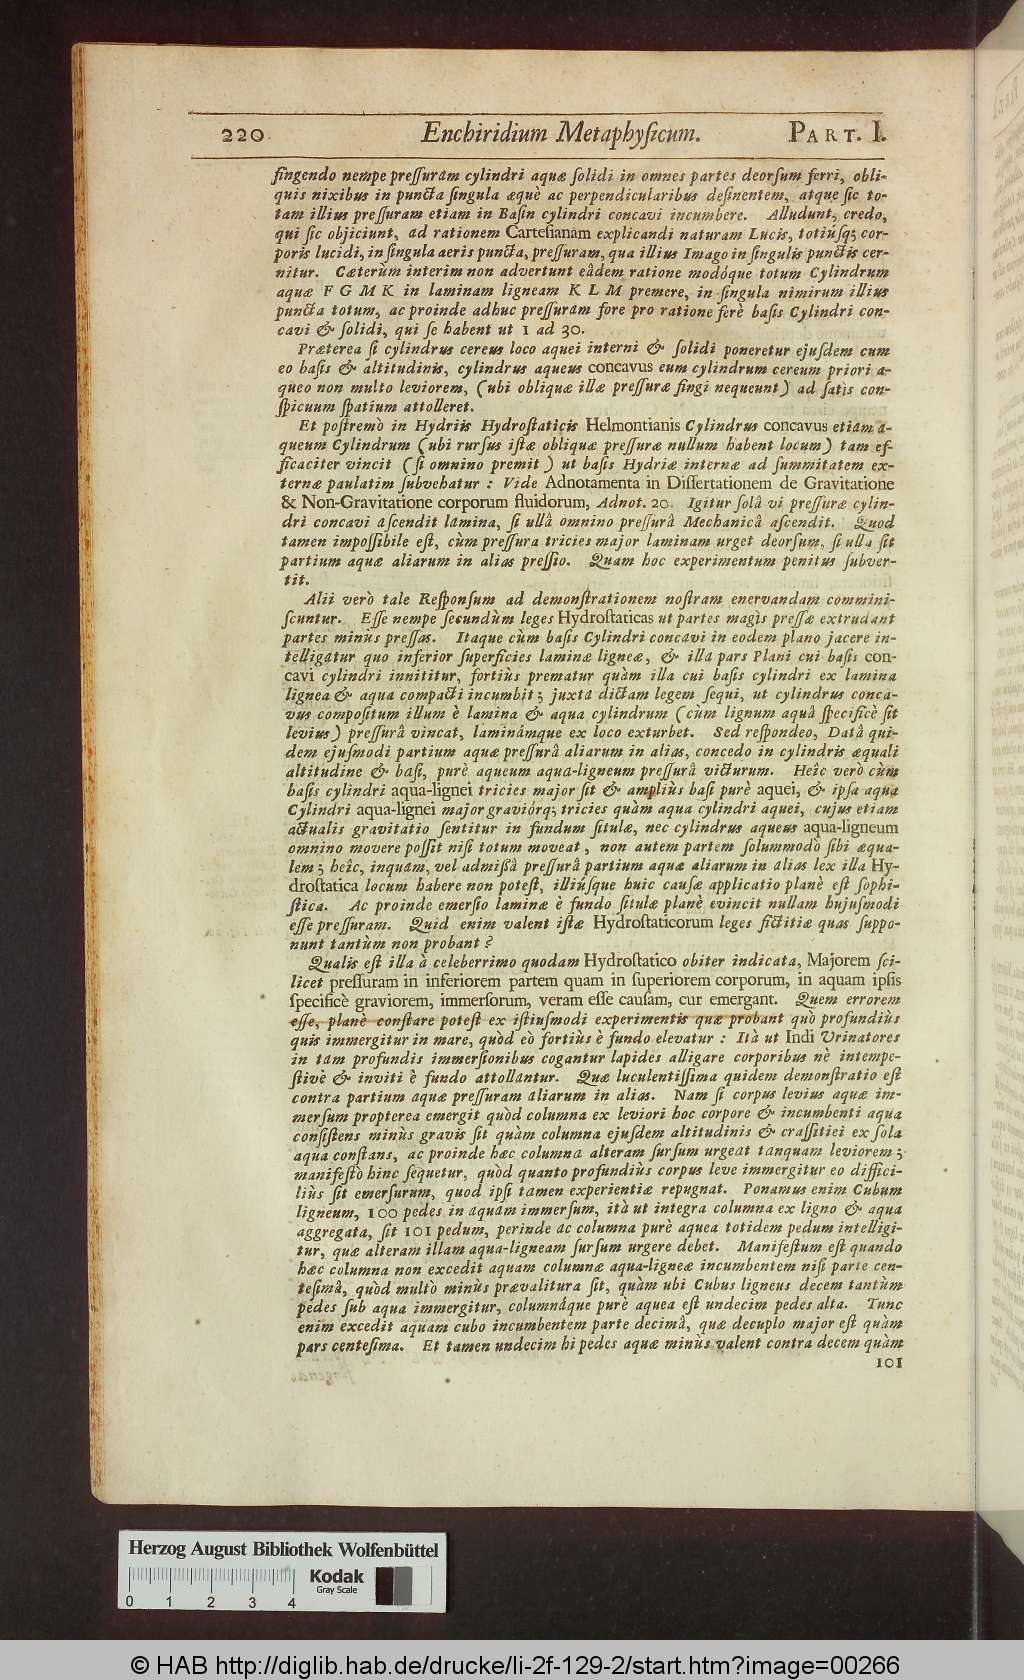 220. Enchiridium Metaphyſicum. PART. I.
fingendo nempe preſſuram cylindri aquæ ſolidi in omnes partes deorſum ferri, obli-
quis nixibus in puncta ſingula æquè ac perpendicularibus deſinentem, atque ſic to-
tam illius preſſuram etiam in Baſin cylindri concavi incumbere. Alludunt, credo,
qui ſic objiciunt, ad rationem Carteſianam explicandi naturam Lucis, totiúſq; cor-
poris lucidi, in ſingula aeris puncta, preſſuram, qua illius Imago in ſingulis punctis cer-
nitur. Cæterùm interim non advertunt eâdem ratione modóque totum Cylindrum
aquæ F G M K in laminam ligneam K L M premere, in ſingula nimirum illius
puncta totum, ac proinde adhuc preſſuram fore pro ratione ferè baſis Cylindri con-
cavi & ſolidi, qui ſe habent ut 1 ad 30.
Præterea ſi cylindrus cereus loco aquei interni & ſolidi poneretur ejuſdem cum
eo baſis & altitudinis, cylindrus aqueus concavus eum cylindrum cereum priori a-
queo non multo leviorem, (ubi obliquæ illæ preſſuræ fingi nequeunt) ad ſatìs con-
ſpicuum ſpatium attolleret.
Et poſtremò in Hydriis Hydroſtaticis Helmontianis Cylindrus concavus etiam a-
queum Cylindrum (ubi rurſus iſtæ obliquæ preſſuræ nullum habent locum) tam ef-
ficaciter vincit (ſi omnino premit) ut baſis Hydriæ internæ ad ſummitatem ex-
ternæ paulatim ſubvehatur : Vide Adnotamenta in Diſſertationem de Gravitatione
& Non-Gravitatione corporum fluidorum, Adnot. 20. Igitur ſolâ vi preſſuræ cylin-
dri concavi aſcendit lamina, ſi ullâ omnino preſſurâ Mechanicâ aſcendit. Quod
tamen impoſſibile eſt, cùm preſſura tricies major laminam urget deorſum, ſi ulla ſit
partium aquæ aliarum in alias preſſio. Quam hoc experimentum penitus ſubver-
tit.
Alii verò tale Reſponſum ad demonſtrationem noſtram enervandam commini-
ſcuntur. Eſſe nempe ſecundùm leges Hydroſtaticas ut partes magìs preſſæ extrudant
partes minùs preſſas. Itaque cùm baſis Cylindri concavi in eodem plano jacere in-
telligatur quo inferior ſuperficies laminæ ligneæ, & illa pars Plani cui baſis con-
cavi cylindri innititur, fortiùs prematur quàm illa cui baſis cylindri ex lamina
lignea & aqua compacti incumbit ; juxta dictam legem ſequi, ut cylindrus conca-
vus compoſitum illum è lamina & aqua cylindrum (cùm lignum aquâ ſpecificè ſit
levius) preſſurâ vincat, laminámque ex loco exturbet. Sed reſpondeo, Datâ qui-
dem ejuſmodi partium aquæ preſſurâ aliarum in alias, concedo in cylindris æquali
altitudine & baſi, purè aqueum aqua-ligneum preſſurâ victurum. Heîc verò cùm
baſis cylindri aqua-lignei tricies major ſit & ampliùs baſi purè aquei, & ipſa aqua
Cylindri aqua-lignei major graviórq; tricies quàm aqua cylindri aquei, cujus etiam
actualis gravitatio ſentitur in fundum ſitulæ, nec cylindrus aqueus aqua-ligneum
omnino movere poſſit niſi totum moveat, non autem partem ſolummodò ſibi æqua-
lem ; heîc, inquam, vel admiſſâ preſſurâ partium aquæ aliarum in alias lex illa Hy-
droſtatica locum habere non poteſt, illiúſque huic cauſæ applicatio planè eſt ſophi-
ſtica. Ac proinde emerſio laminæ è fundo ſitulæ planè evincit nullam hujuſmodi
eſſe preſſuram. Quid enim valent iſtæ Hydroſtaticorum leges fictitiæ quas ſuppo-
nunt tantùm non probant ?
Qualis eſt illa à celeberrimo quodam Hydroſtatico obiter indicata, Majorem ſci-
licet preſſuram in inferiorem partem quam in ſuperiorem corporum, in aquam ipſis
ſpecificè graviorem, immerſorum, veram eſſe cauſam, cur emergant. Quem errorem
eſſe, planè conſtare poteſt ex iſtiuſmodi experimentis quæ probant quò profundiùs
quis immergitur in mare, quòd eò fortiùs è fundo elevatur : Ità ut Indi Urinatores
in tam profundis immerſionibus cogantur lapides alligare corporibus nè intempe-
ſtivè & inviti è fundo attollantur. Quæ luculentiſſima quidem demonſtratio eſt
contra partium aquæ preſſuram aliarum in alias. Nam ſi corpus levius aquæ im-
merſum propterea emergit quòd columna ex leviori hoc corpore & incumbenti aqua
conſiſtens minùs gravis ſit quàm columna ejuſdem altitudinis & craſſitiei ex ſola
aqua conſtans, ac proinde hæc columna alteram ſurſum urgeat tanquam leviorem ;
manifeſtò hinc ſequetur, quòd quanto profundiùs corpus leve immergitur eo diffici-
liùs ſit emerſurum, quod ipſi tamen experientiæ repugnat. Ponamus enim Cubum
ligneum, 100 pedes in aquam immerſum, ità ut integra columna ex ligno & aqua
aggregata, ſit 101 pedum, perinde ac columna purè aquea totidem pedum intelligi-
tur, quæ alteram illam aqua-ligneam ſurſum urgere debet. Manifeſtum eſt quando
hæc columna non excedit aquam columnæ aqua-ligneæ incumbentem niſi parte cen-
teſimâ, quòd multò minùs prævalitura ſit, quàm ubi Cubus ligneus decem tantùm
pedes ſub aqua immergitur, columnáque purè aquea eſt undecim pedes alta. Tunc
enim excedit aquam cubo incumbentem parte decimâ, quæ decuplo major eſt quàm
pars centeſima. Et tamen undecim hi pedes aquæ minùs valent contra decem quàm
101
Herzog August Bibliothek Wolfenbüttel
Kodak
Gray Scale
0 1 2 3 4
© HAB http://diglib.hab.de/drucke/li-2f-129-2/start.htm?image=00266